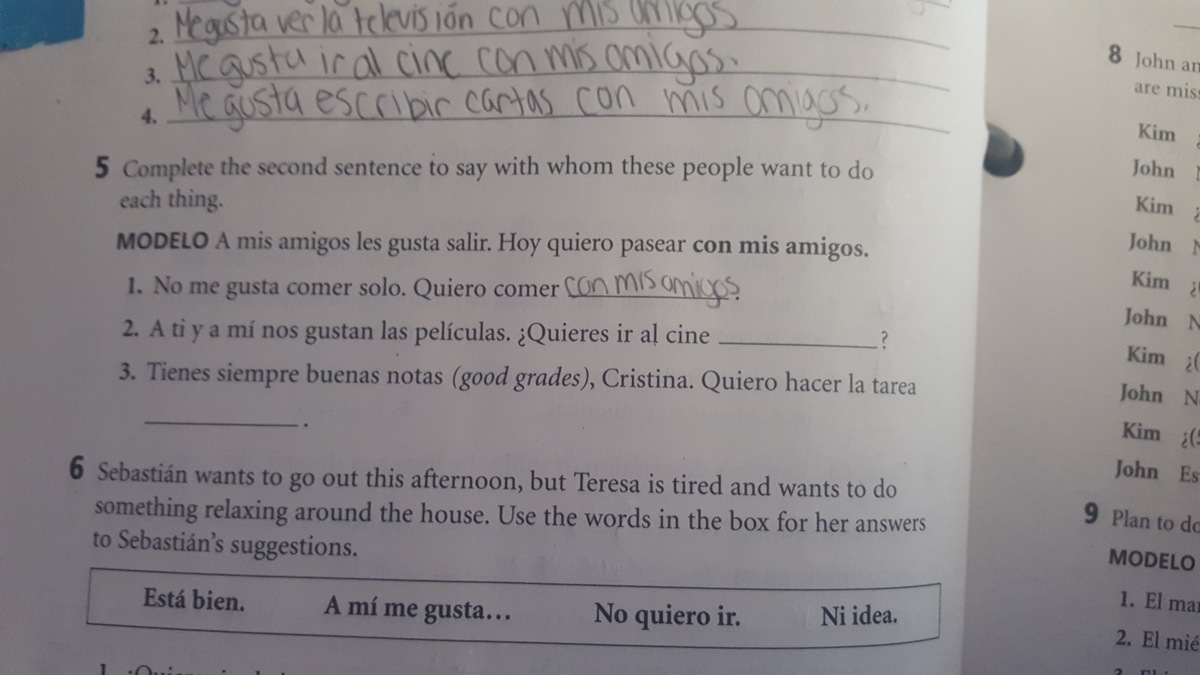 2. Me gusta ver la televisión con mis amigos
3. Me gusta ir al cine con mis amigos.
4. Me gusta escribir cartas con mis amigos.
5 Complete the second sentence to say with whom these people want to do
each thing.
MODELO A mis amigos les gusta salir. Hoy quiero pasear con mis amigos.
1. No me gusta comer solo. Quiero comer con mis amigos.
2. A ti y a mí nos gustan las películas. ¿Quieres ir al cine ____________?
3. Tienes siempre buenas notas (good grades), Cristina. Quiero hacer la tarea
____________.
6 Sebastián wants to go out this afternoon, but Teresa is tired and wants to do
something relaxing around the house. Use the words in the box for her answers
to Sebastián's suggestions.
Está bien. A mí me gusta... No quiero ir. Ni idea.
8 John
are
Kim ¿
John
Kim ¿
John
Kim ¿
John
Kim ¿(
John
Kim ¿(
John Es
9 Plan to
MODELO
1. El
2. El